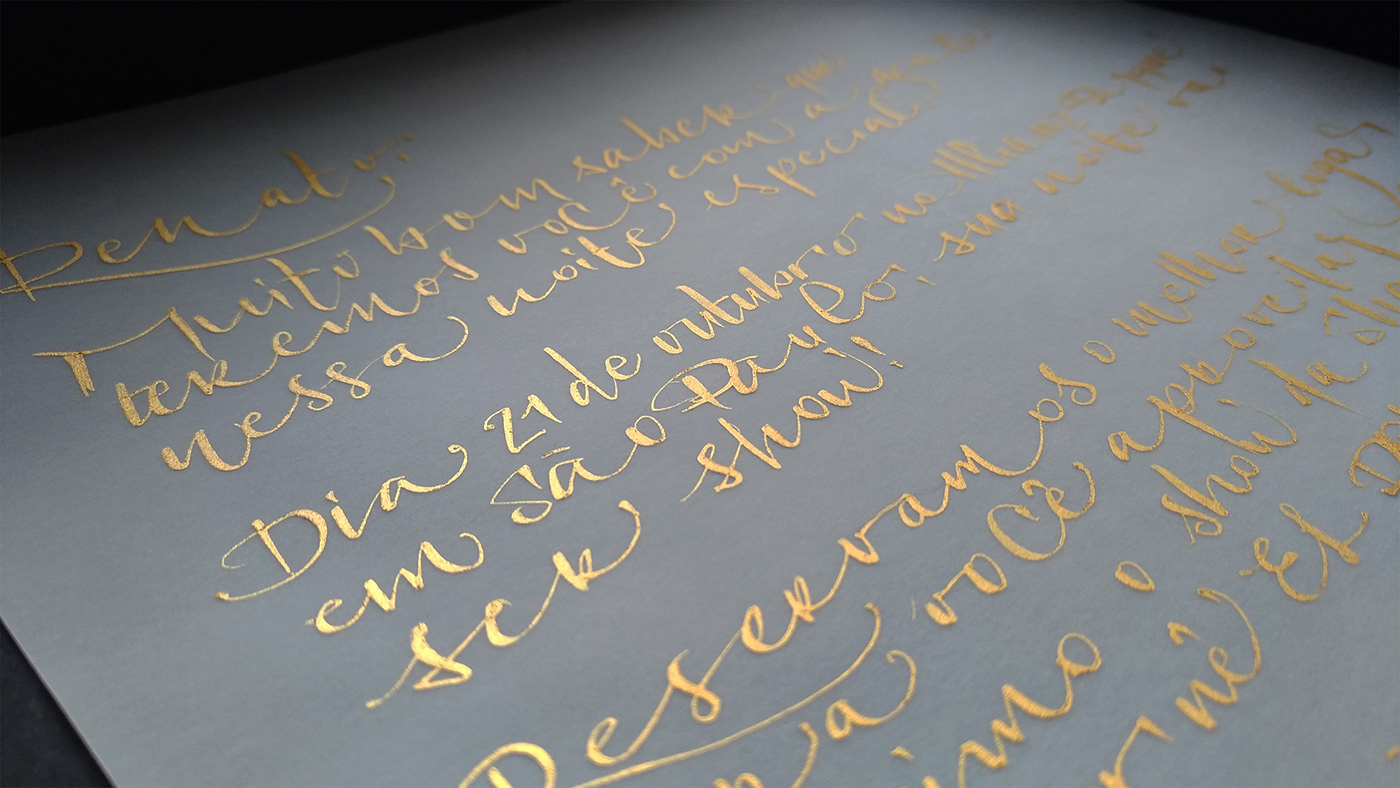 Renato,
Muito bom saber que
teremos você com a gente
nessa noite especial
Dia 21 de outubro no Allianz Parque
em São Paulo, sua noite va
ser show!
Reservamos o melhor lugar
você aproveitar
o show da Sha
né El